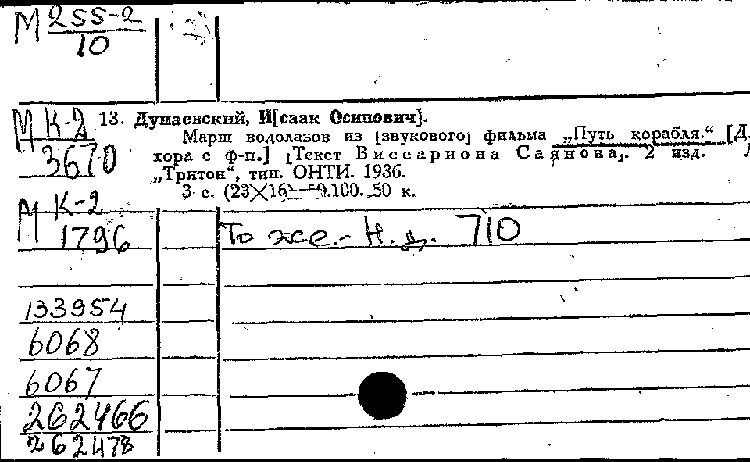 М 255-2
10
М К-2
3670
13. Дунаевский, И[саак Осипович].
Марш водолазов из [звукового] фильма „Путь корабля.“ [Д
хора с ф-п.] [Текст Виссариона Саянова]. 2 изд.
„Тритон“, тип. ОНТИ. 1936.
3 с. (23×16) 50 к.
М К-2
1796
То же.- Н.д. 710
133954
6068
6067
262466
262478